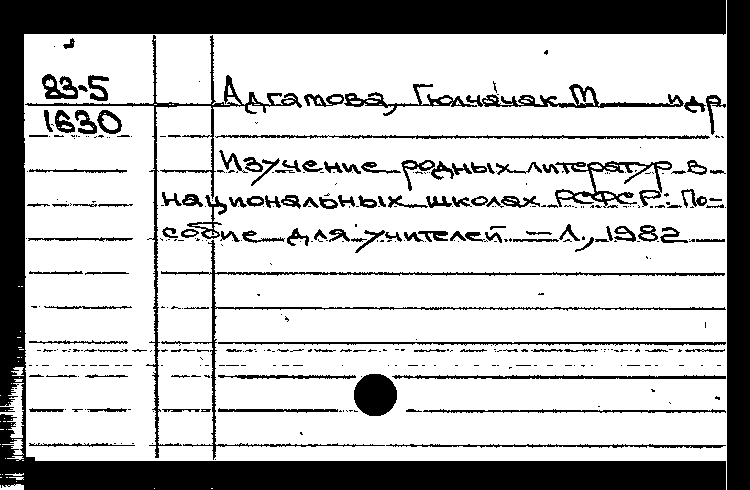 83-5
1630
Адгамова, Гюлчачак М и др
Изучение родных литератур в
национальных школах РСФСР: По-
собие для учителей – Л., 1982